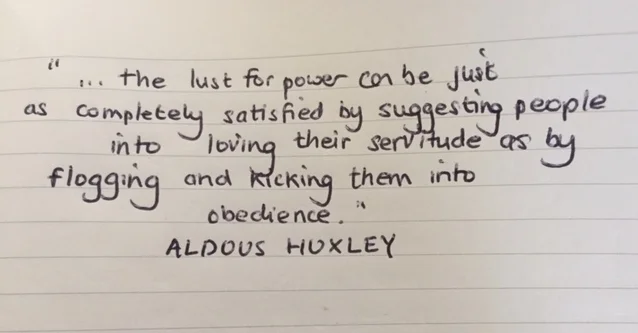 "... the lust for power can be just
as completely satisfied by suggesting people
into loving their servitude as by
flogging and kicking them into
obedience."
ALDOUS HUXLEY